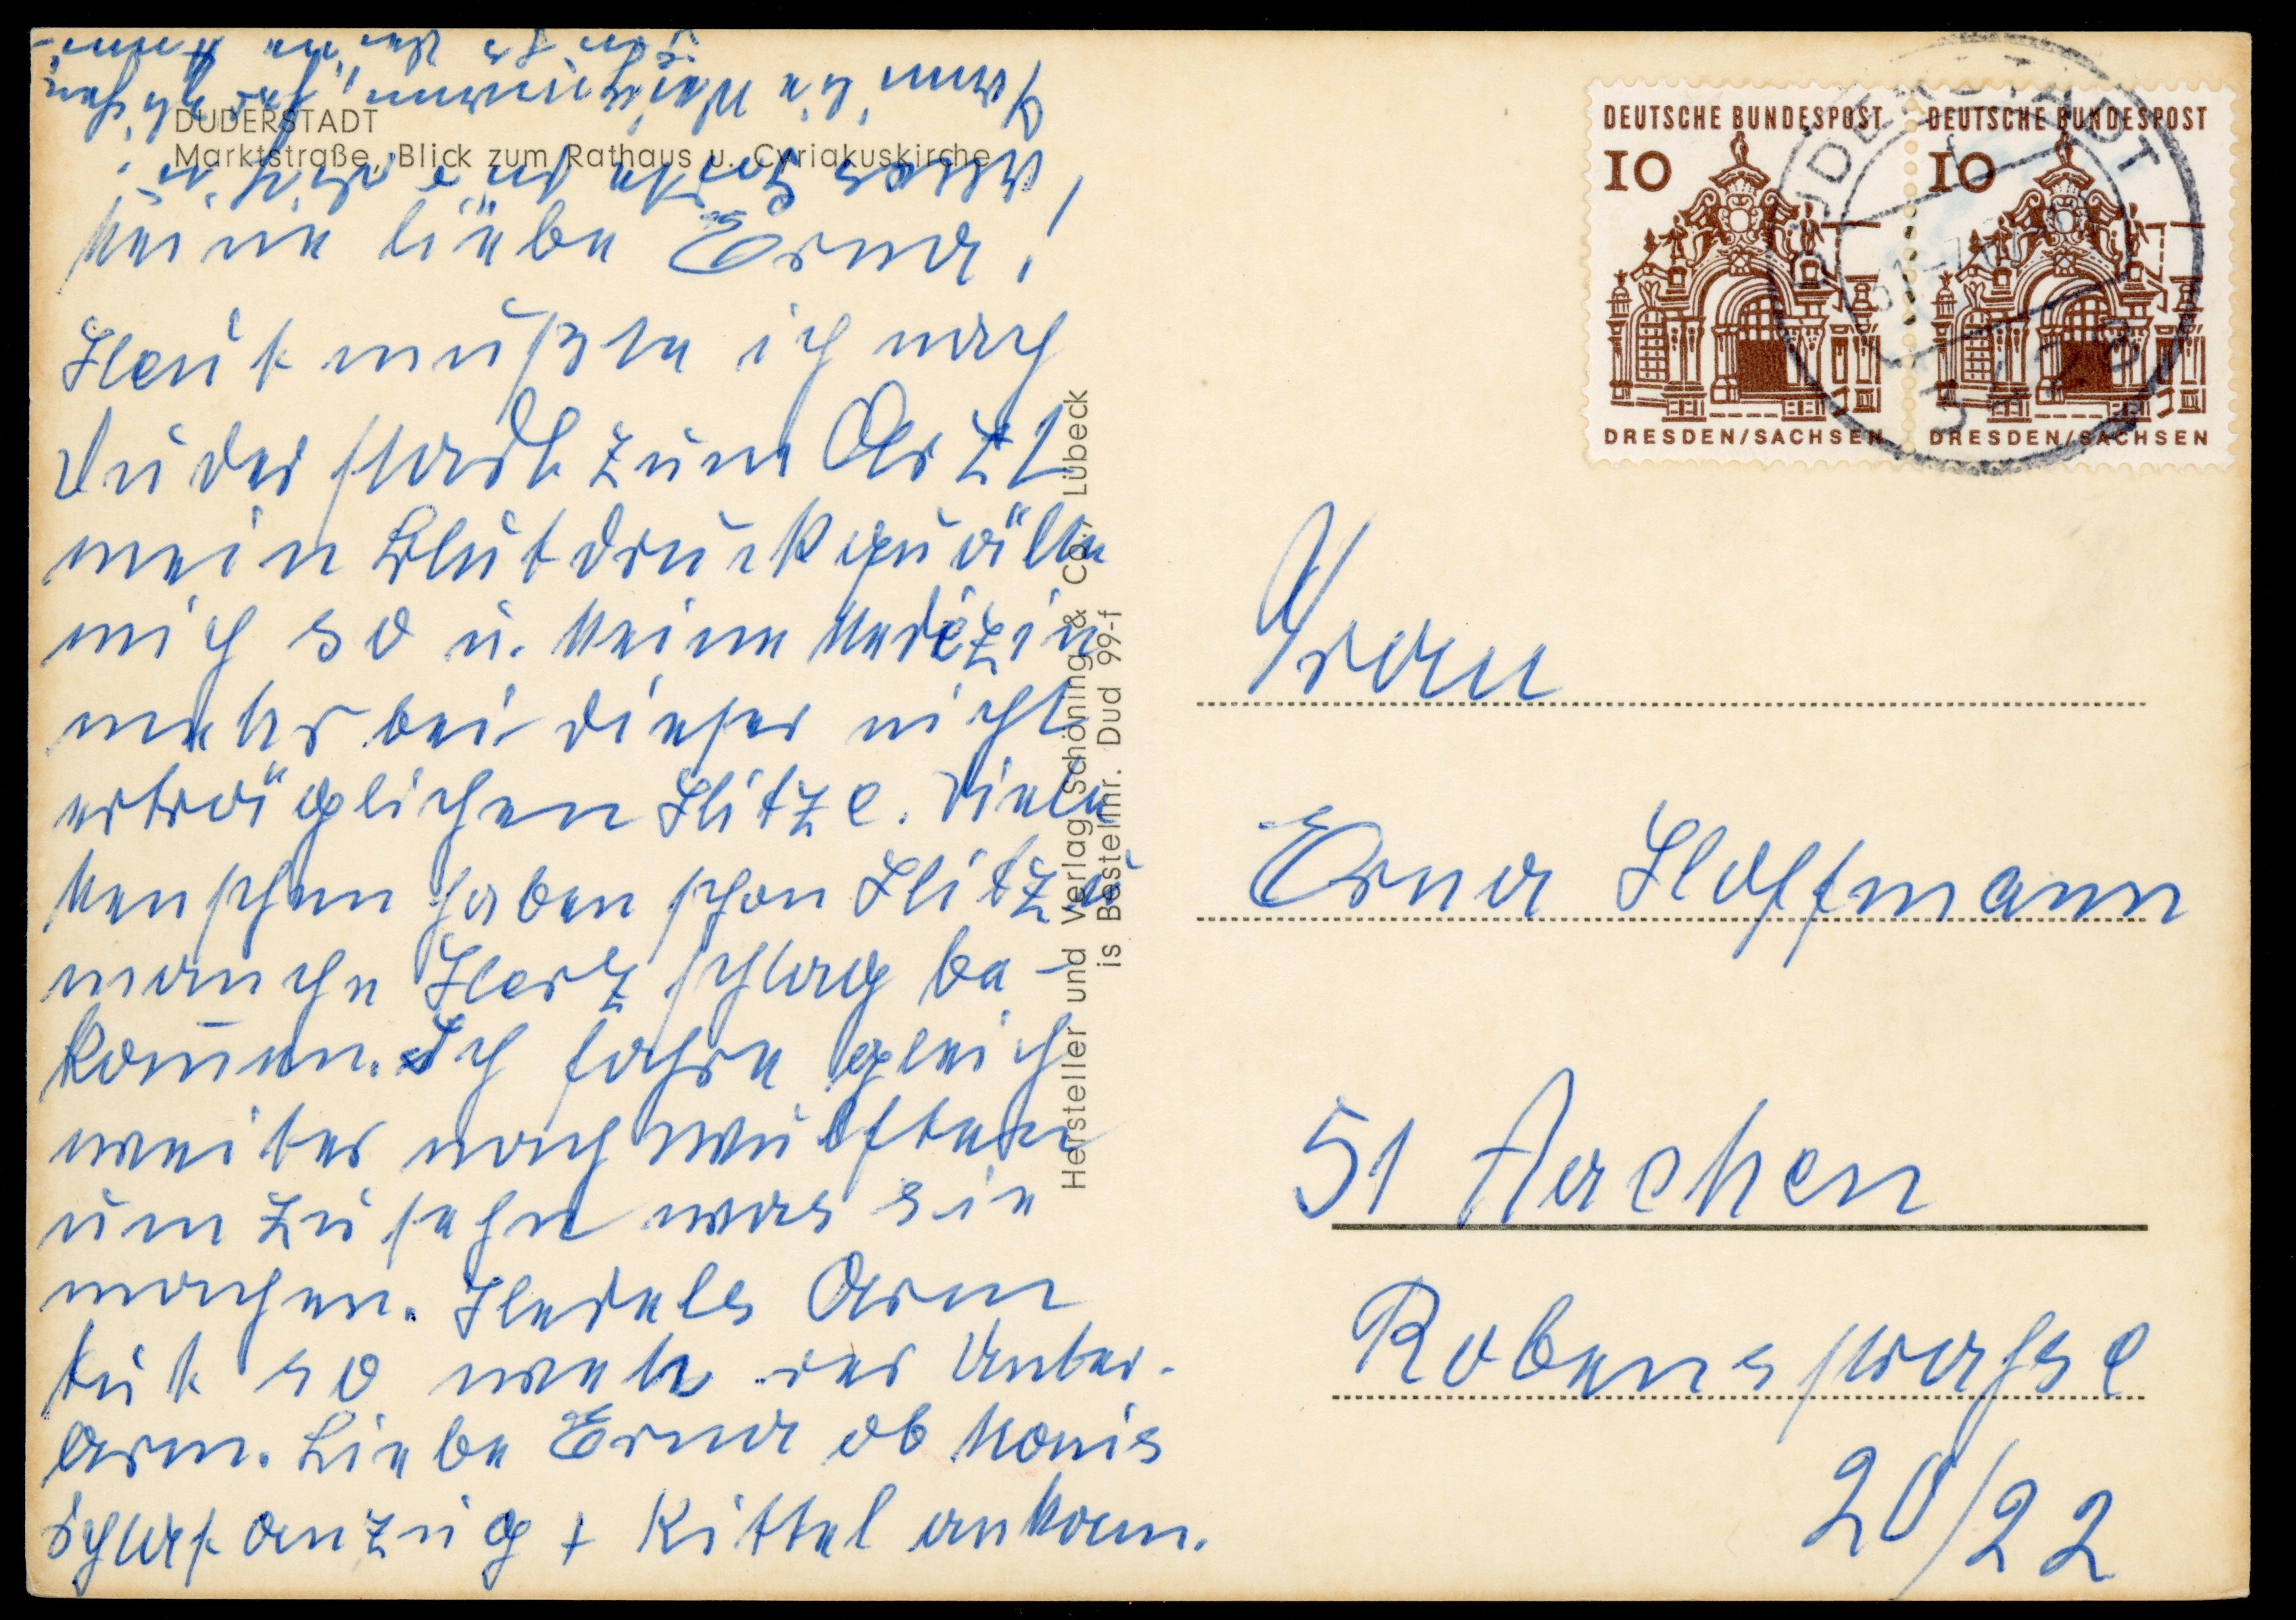 DUDERSTADT
Marktstraße, Blick zum Rathaus u. Cyriakuskirche
Meine liebe Erna!
Heut mußte ich nach
Duderstadt zum Arzt
mein Blutdruck quälte
mich so u. keine Medizin
mehr bei dieser nicht
erträglichen Hitze. Viele
Menschen haben schon Hitze u
manche Herzschlag be-
kom̅en. Ich fahre gleich
weiter nach Wulften
um zu sehn was sie
machen. Hedels Arm
tut so weh der Unter-
arm. Liebe Erna ob Monis
Schlafanzug + Kittel ankam.
Hersteller und Verlag Schöning & Co., Lübeck
is Bestellnr. Dud 99-f
DEUTSCHE BUNDESPOST
10
DRESDEN/SACHSEN
DEUTSCHE BUNDESPOST
10
DRESDEN/SACHSEN
DUDERSTADT
Frau
Erna Hoffmann
51 Aachen
Robensstrasse
20/22